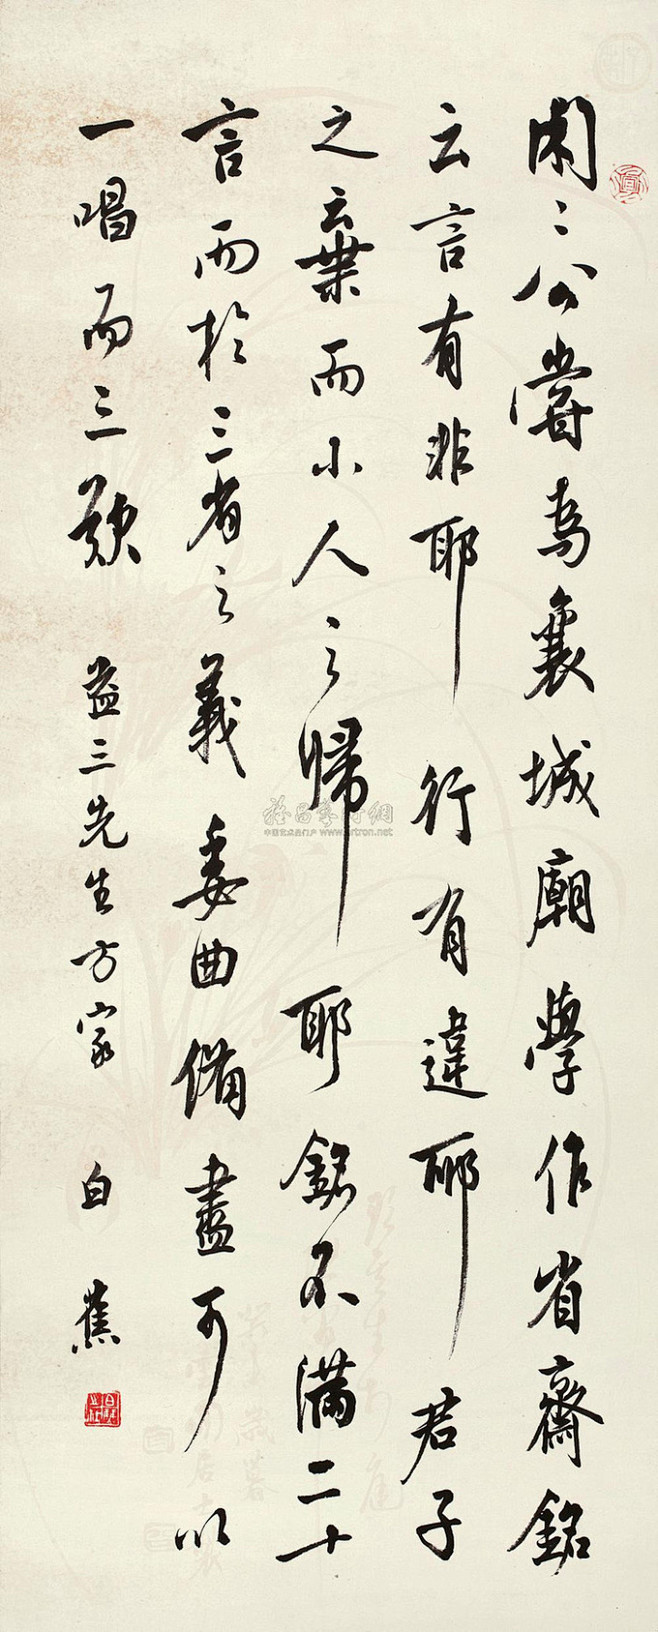 閑〻公嘗為襄城廟學作省齋銘
云言有非耶行有違耶君子
之云棄而小人之歸耶銘不滿二十
言而於三省之義委曲備盡可以
一唱而三歎 益三先生方家 白蕉
中国艺术品门户 www.artron.net